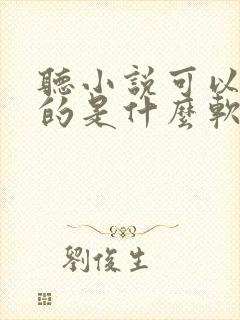 聽小說可以
的是什麼軟
劉俊生